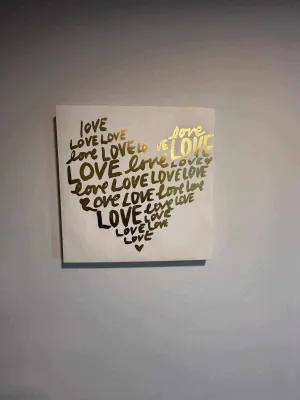 love
LOVE LOVE love
love LOVE LO VE LOVE
LOVE love LOVE
love LOVE LOVE LOVE
LOVE LOVE love LOVE
LOVE love LOVE
LOVE
LOVE LOVE
LOVE